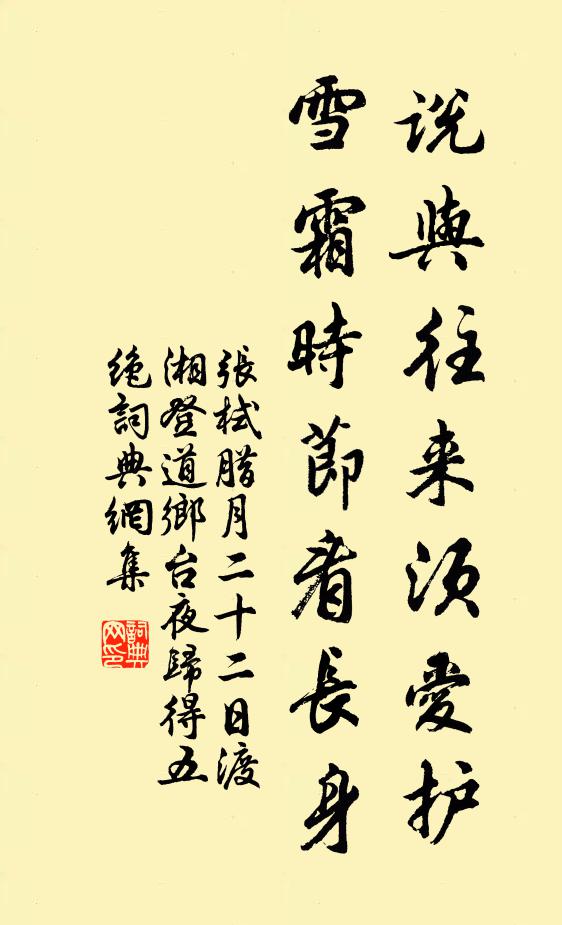 説與往来須愛护
雪霜時節看長身
張栻腊月二十二日渡
湘登道鄉台夜歸得五
絶詞典網集
詞典
网印